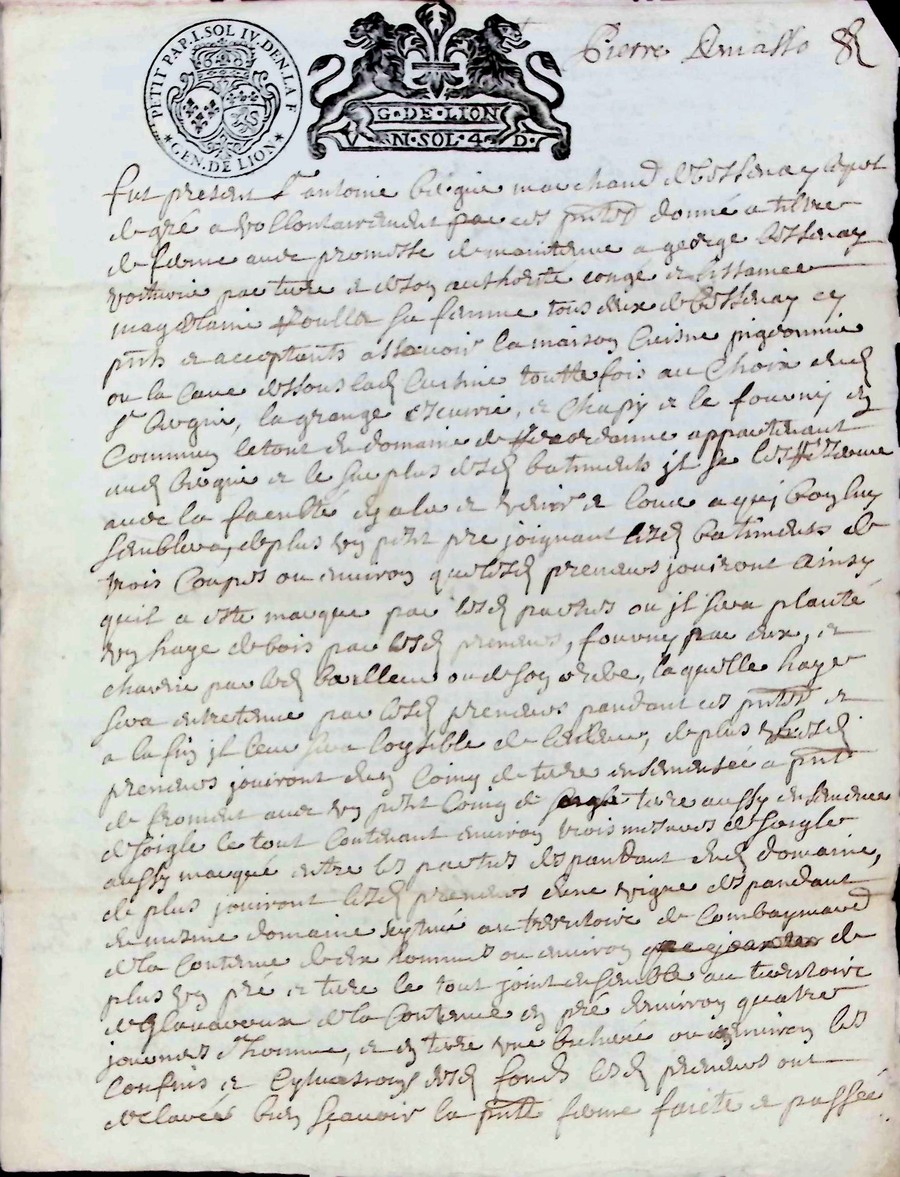 PETIT PAP. I. SOL IV. DEN. LA F
GEN. DE LION
G. DE LION
V N. SOL. 4 D.
Pierre
fut present Sr antoine marchand de bessenay lequel
de gré a vollontairement par ces pntes donné a tiltre
de ferme avec promesse de maintenue a george bessenay
voiturier par terre et de son authorité congé et
magdelaine sa femme tous deux de bessenay cy
pnts et acceptants assavoir la maison Cuisine
ou la Cave dessous lad Cuisine toutte fois au Choix dud
Sr la grange Ecurie, et Chapy et le fourny en
Commun le tout du domaine de appartenant
aud et le surplus desd batiments jl se
avec la faculté et venir et loue a quj bon luy
semblera, de plus un petit pré joignant lesd batiments de
trois Coupes ou environ que lesd preneurs jouiront Ainsy
quil a esté marque par lesd parties ou jl sera planté
un haye de bois par lesd preneurs, fourny par eux, et
par led bailleur ou de son ordre, laquelle haye
sera entretenue par lesd preneurs pandant ces pntes et
a la fin jl leur sera loysible de de plus lesd
preneurs jouiront dun Coing de terre ensemensée a pnt
de froment avec un petit Coing de terre aussy ensemencé
de soigle le tout Contenant environ trois mesures de soigle
aussy marqué entre les parties despandant dud domaine,
de plus jouiront lesd preneurs dune vigne despandant
du mesme domaine scytué au territoire de
de la Contenue de dix hommes ou environ de
plus un pré et terre le tout joint ensemble au territoire
de de la Contenue en pré denviron quatre
journes dhomme, et en terre une bicheré ou environ les
Confins et desd fonds lesd preneurs ont
declarés bien sçavoir la pnte ferme faicte et passée